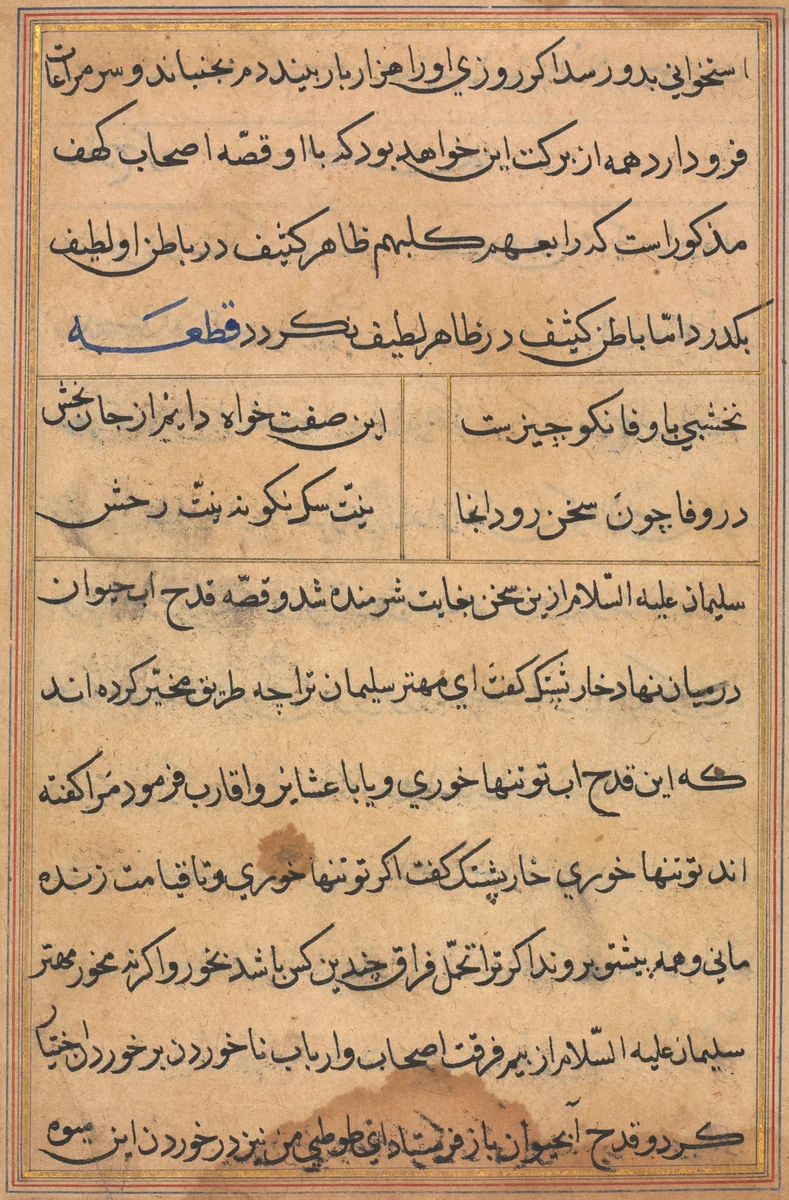 استخواني بدو رسد اكر روزي او را هزار بار بيند دم بجنباند و سر مراعات
فرو دارد همه از بركت اين خواهد بود كه با او قصّه اصحاب كهف
مذكور است كه رابعهم كلبهم ظاهر كثيف در باطن او لطيف
بكدرد امّا باطن كثيف در ظاهر لطيف نكردد قطعه
نخشبي با وفا نكو چيزست
اين صفت خواه دايم از جان بخش
در وفا چون سخن رود انجا
نيّت سك نكو نه نيتّ رحش
سليمان عليه السّلام ازين سخن بغايت شرمنده شد و قصّه قدح اب حيوان
در ميان نهاد خار پشتك كفت اي مهتر سليمان ترا چه طريق مخيّر كرده اند
كه اين قدح اب تو تنها خوري و يا با عشاير و اقارب فرمود مرا كفته
اند تو تنها خوري خار پشتك كفت اكر تو تنها خوري و تا قيامت زنده
ماني و همه پيشتو بروند اكر ترا تحمّل فراق چندين كس باشد بخور و اكر نه مخور مهتر
سليمان عليه السّلام از بيم فرقت اصحاب و ارباب ناخوردن بر خوردن اختيار
كرد و قدح آبحيوان باز فرستاد اي طوطي من نيز در خوردن اين ميوه